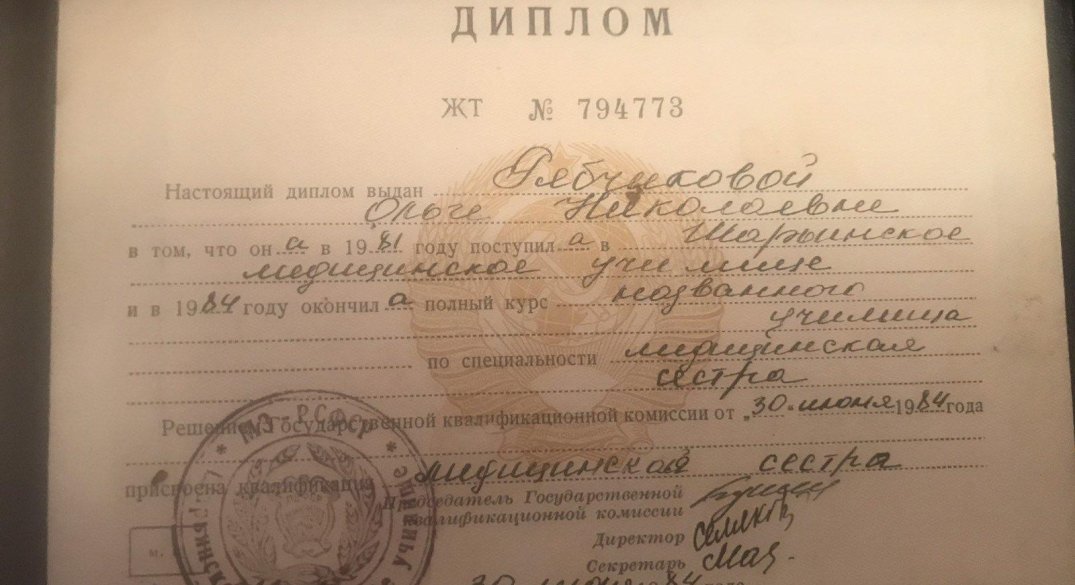 ДИПЛОМ
ЖТ № 794773
Настоящий диплом выдан Рябчиковой
Ольге Николаевне
в том, что он а в 1981 году поступил а в Шарьинское
медицинское училище
и в 1984 году окончил а полный курс названного
училища
по специальности медицинская
сестра
Решением Государственной квалификационной комиссии от „30" июня 1984 года
присвоена квалификация медицинской сестра
Председатель Государственной
квалификационной комиссии
Директор
Секретарь
30 июня 1984 года
М.
МЗ РСФСР